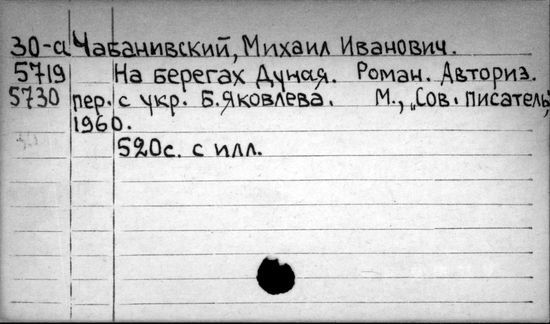 30-а Чабанивский, Михаил Иванович.
5719 На берегах Дуная. Роман. Авториз.
5730 пер. с укр. Б. Яковлева. М., „Сов. писатель",
1960.
520с. с илл.